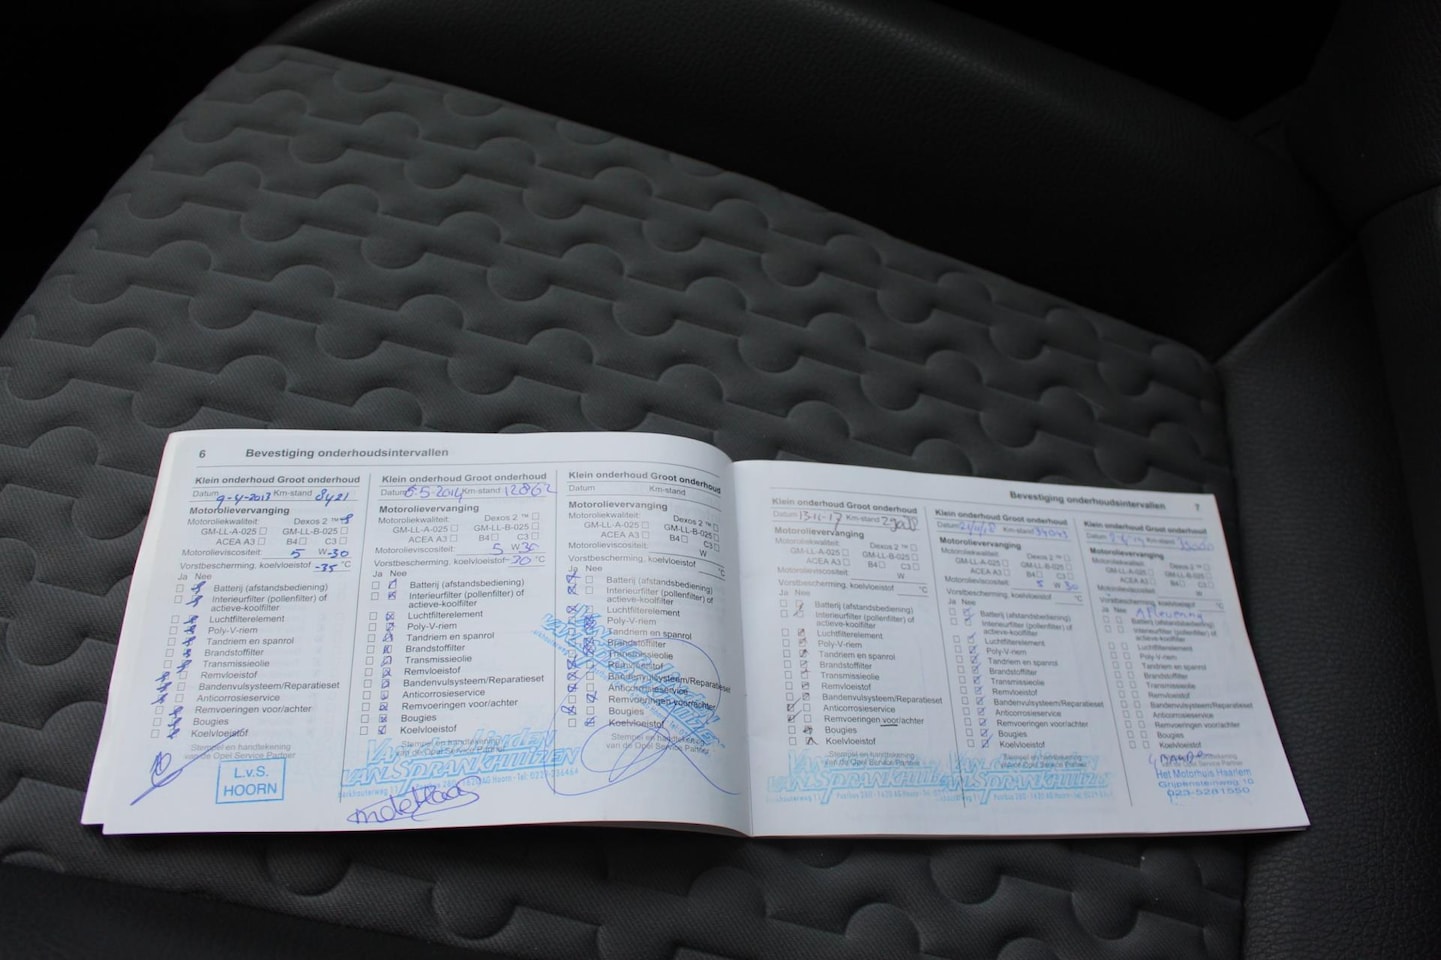 6 Bevestiging onderhoudsintervallen
Klein onderhoud Groot onderhoud
Datum 9-4-2013 Km-stand 8421
Motorolievervanging
Motoroliekwaliteit: Dexos 2 ™
GM-LL-A-025 GM-LL-B-025
ACEA A3 B4 C3
Motorolieviscositeit: 5 W-30
Vorstbescherming, koelvloeistof -35 °C
Ja Nee
Batterij (afstandsbediening)
Interieurfilter (pollenfilter) of
actieve-koolfilter
Luchtfilterelement
Poly-V-riem
Tandriem en spanrol
Brandstoffilter
Transmissieolie
Remvloeistof
Bandenvulsysteem/Reparatieset
Anticorrosieservice
Remvoeringen voor/achter
Bougies
Koelvloeistof
Stempel en handtekening
van de Opel Service Partner
L.v.S
HOORN
Klein onderhoud Groot onderhoud
Datum 6-5-2014 Km-stand 12862
Motorolievervanging
Motoroliekwaliteit: Dexos 2 ™
GM-LL-A-025 GM-LL-B-025
ACEA A3 B4 C3
Motorolieviscositeit: 5 W 30
Vorstbescherming, koelvloeistof °C
Ja Nee
Batterij (afstandsbediening)
Interieurfilter (pollenfilter) of
actieve-koolfilter
Luchtfilterelement
Poly-V-riem
Tandriem en spanrol
Brandstoffilter
Transmissieolie
Remvloeistof
Bandenvulsysteem/Reparatieset
Anticorrosieservice
Remvoeringen voor/achter
Bougies
Koelvloeistof
Stempel en handtekening
van de Opel Service Partner
VAN SPRANKHUIZEN
Klein onderhoud Groot onderhoud
Datum Km-stand
Motorolievervanging
Motoroliekwaliteit: Dexos 2 ™
GM-LL-A-025 GM-LL-B-025
ACEA A3 B4 C3
Motorolieviscositeit: W
Vorstbescherming, koelvloeistof °C
Ja Nee
Batterij (afstandsbediening)
Interieurfilter (pollenfilter) of
actieve-koolfilter
Luchtfilterelement
Poly-V-riem
Tandriem en spanrol
Brandstoffilter
Transmissieolie
Remvloeistof
Bandenvulsysteem/Reparatieset
Anticorrosieservice
Remvoeringen voor/achter
Bougies
Koelvloeistof
Stempel en handtekening
van de Opel Service Partner
Bevestiging onderhoudsintervallen 7
Klein onderhoud Groot onderhoud
Datum 13-11-17 Km-stand
Motorolievervanging
Motoroliekwaliteit: Dexos 2 ™
GM-LL-A-025 GM-LL-B-025
ACEA A3 B4 C3
Motorolieviscositeit: W
Vorstbescherming, koelvloeistof °C
Ja Nee
Batterij (afstandsbediening)
Interieurfilter (pollenfilter) of
actieve-koolfilter
Luchtfilterelement
Poly-V-riem
Tandriem en spanrol
Brandstoffilter
Transmissieolie
Remvloeistof
Bandenvulsysteem/Reparatieset
Anticorrosieservice
Remvoeringen voor/achter
Bougies
Koelvloeistof
Stempel en handtekening
van de Opel Service Partner
VAN SPRANKHUIZEN
Klein onderhoud Groot onderhoud
Datum Km-stand
Motorolievervanging
Motoroliekwaliteit: Dexos 2 ™
GM-LL-A-025 GM-LL-B-025
ACEA A3 B4 C3
Motorolieviscositeit: 5 W 30
Vorstbescherming, koelvloeistof °C
Ja Nee
Batterij (afstandsbediening)
Interieurfilter (pollenfilter) of
actieve-koolfilter
Luchtfilterelement
Poly-V-riem
Tandriem en spanrol
Brandstoffilter
Transmissieolie
Remvloeistof
Bandenvulsysteem/Reparatieset
Anticorrosieservice
Remvoeringen voor/achter
Bougies
Koelvloeistof
Stempel en handtekening
van de Opel Service Partner
VAN SPRANKHUIZEN
Klein onderhoud Groot onderhoud
Datum Km-stand
Motorolievervanging
Motoroliekwaliteit: Dexos 2 ™
GM-LL-A-025 GM-LL-B-025
ACEA A3 B4 C3
Motorolieviscositeit: W
Vorstbescherming, koelvloeistof °C
Ja Nee Aflevering
Batterij (afstandsbediening)
Interieurfilter (pollenfilter) of
actieve-koolfilter
Luchtfilterelement
Poly-V-riem
Tandriem en spanrol
Brandstoffilter
Transmissieolie
Remvloeistof
Bandenvulsysteem/Reparatieset
Anticorrosieservice
Remvoeringen voor/achter
Bougies
Koelvloeistof
van de Opel Service Partner
Het Motorhuis Haarlem
Grijpensteinweg 10
023-5281550